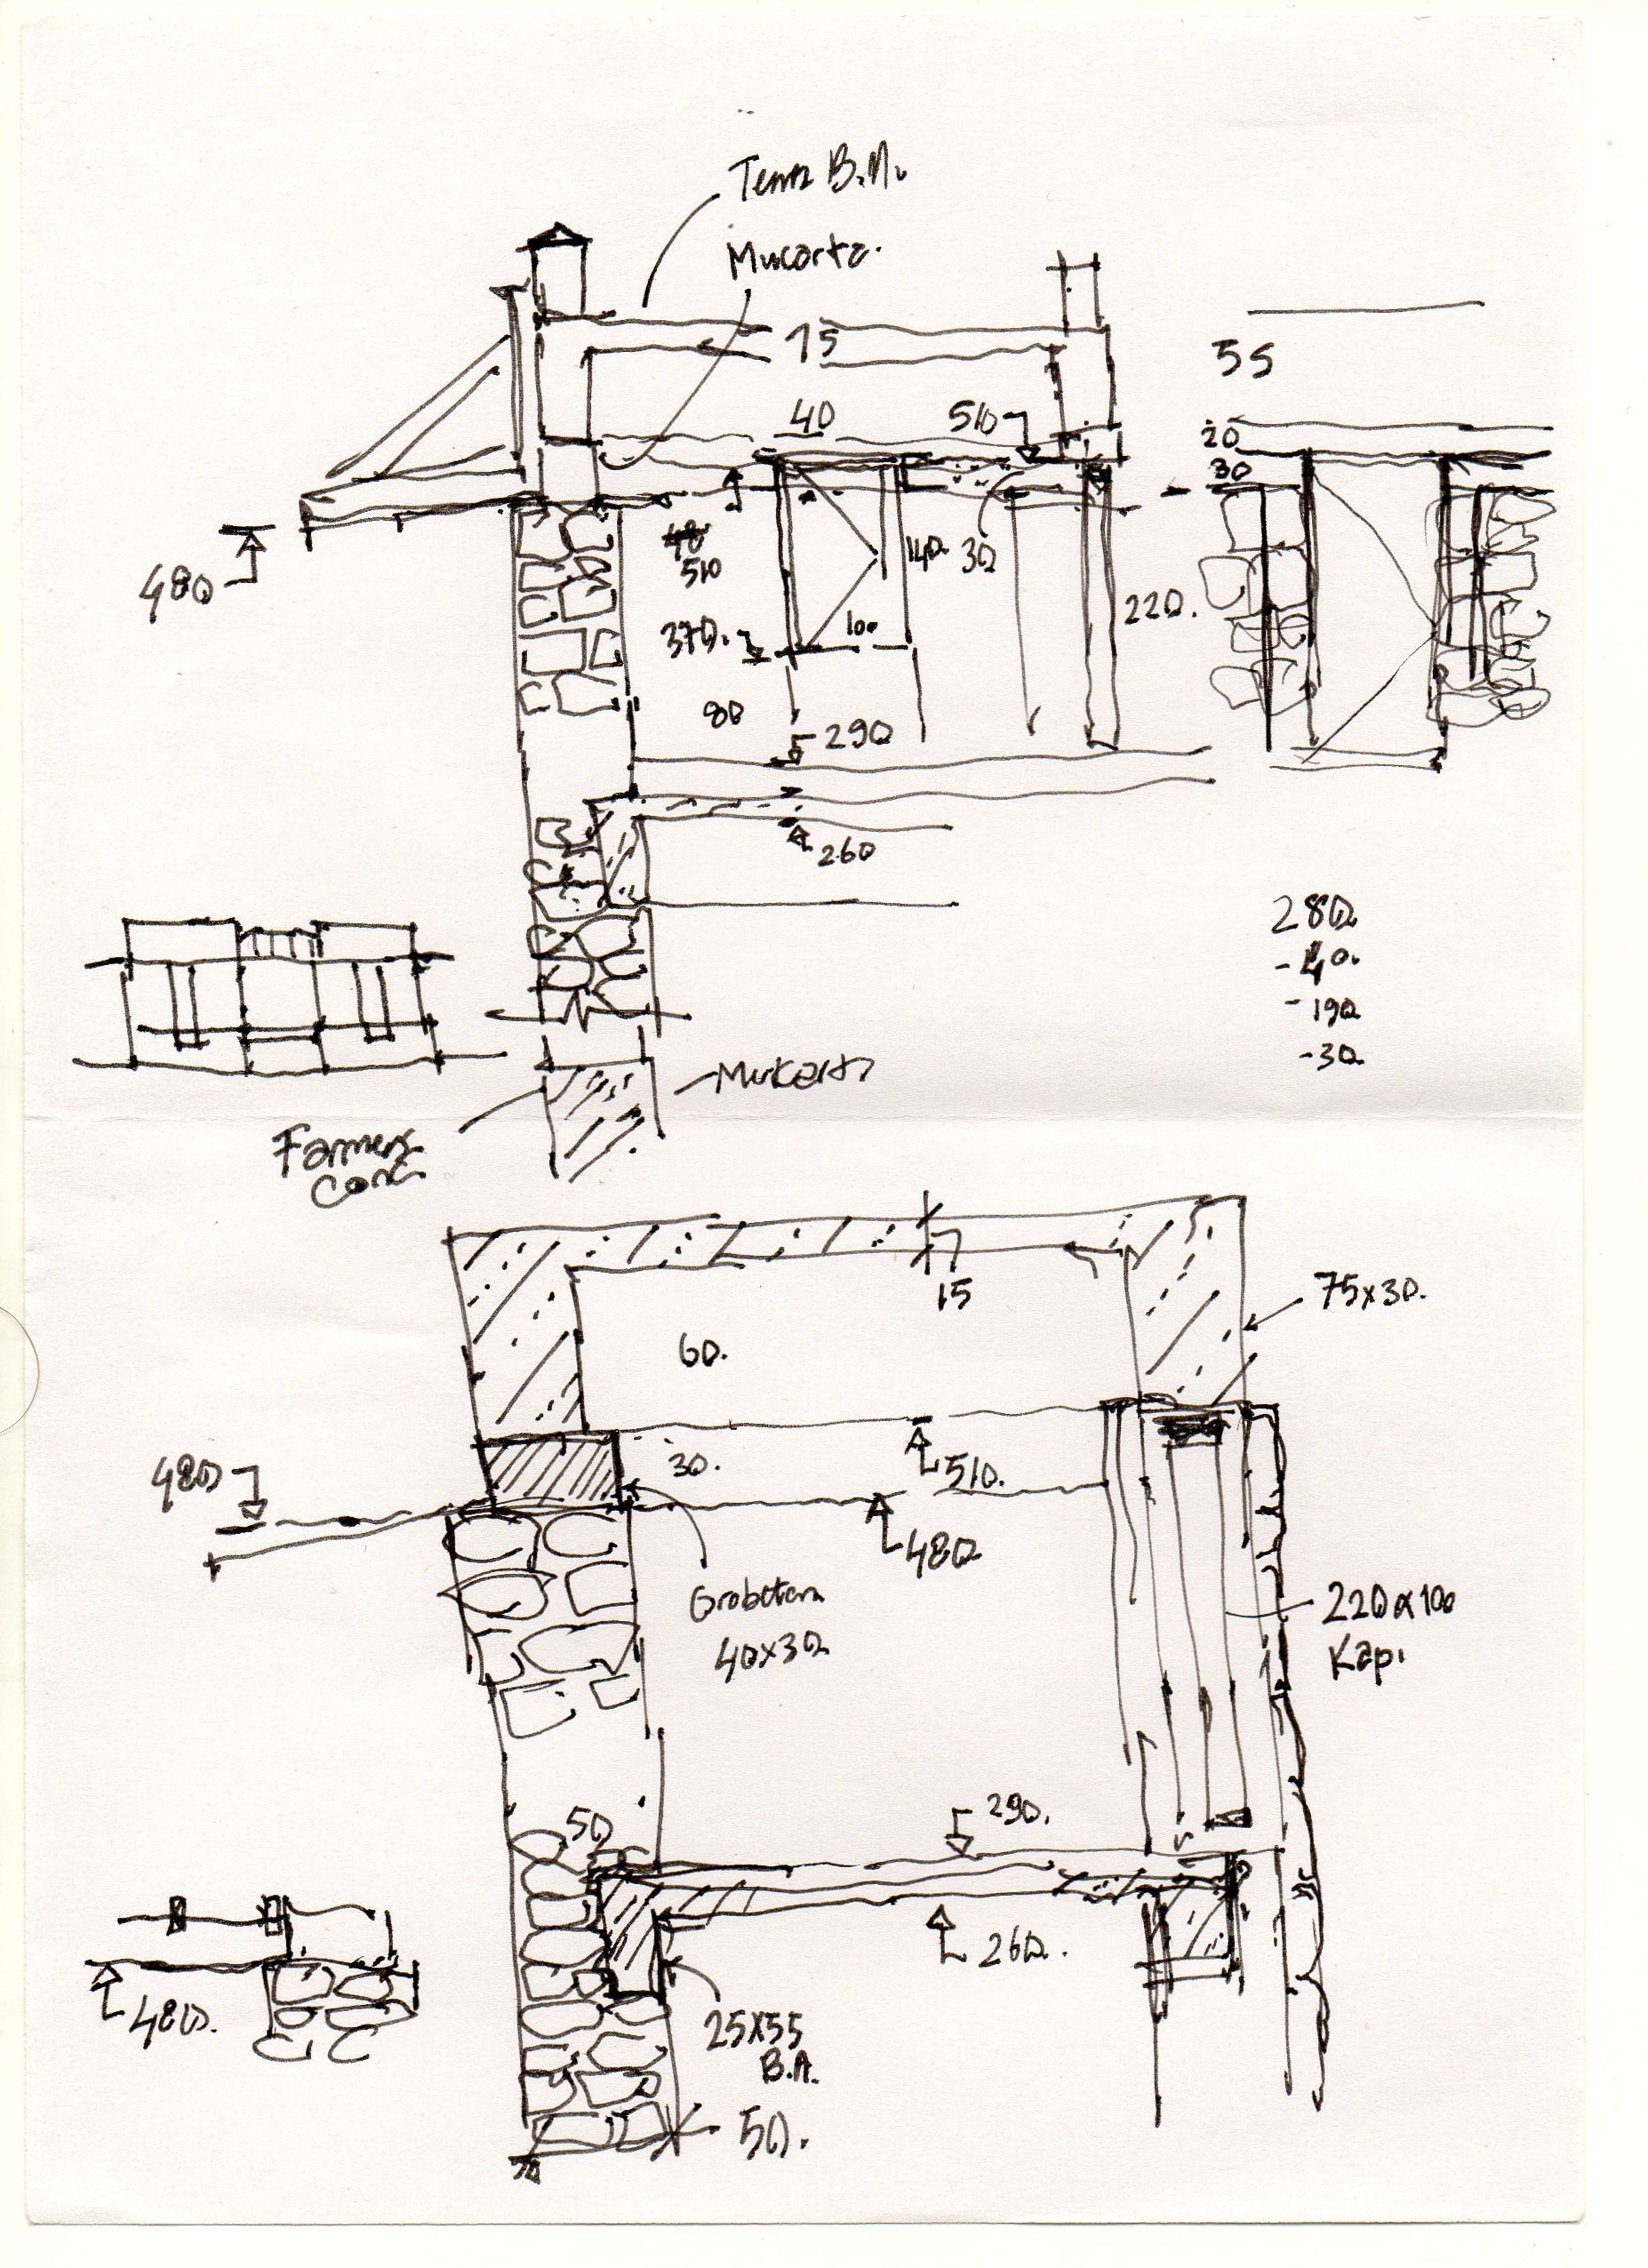 B.A.
15
55
40
510
20
30
480
510
140.
30
370.
100
220.
80
290
260
280
-40.
-190
-30
Farmers
Conc.
15
75x30.
60.
480
30.
510.
480
40x30
220x100
Kapı
50
290.
260.
480.
25x55
B.A.
50.